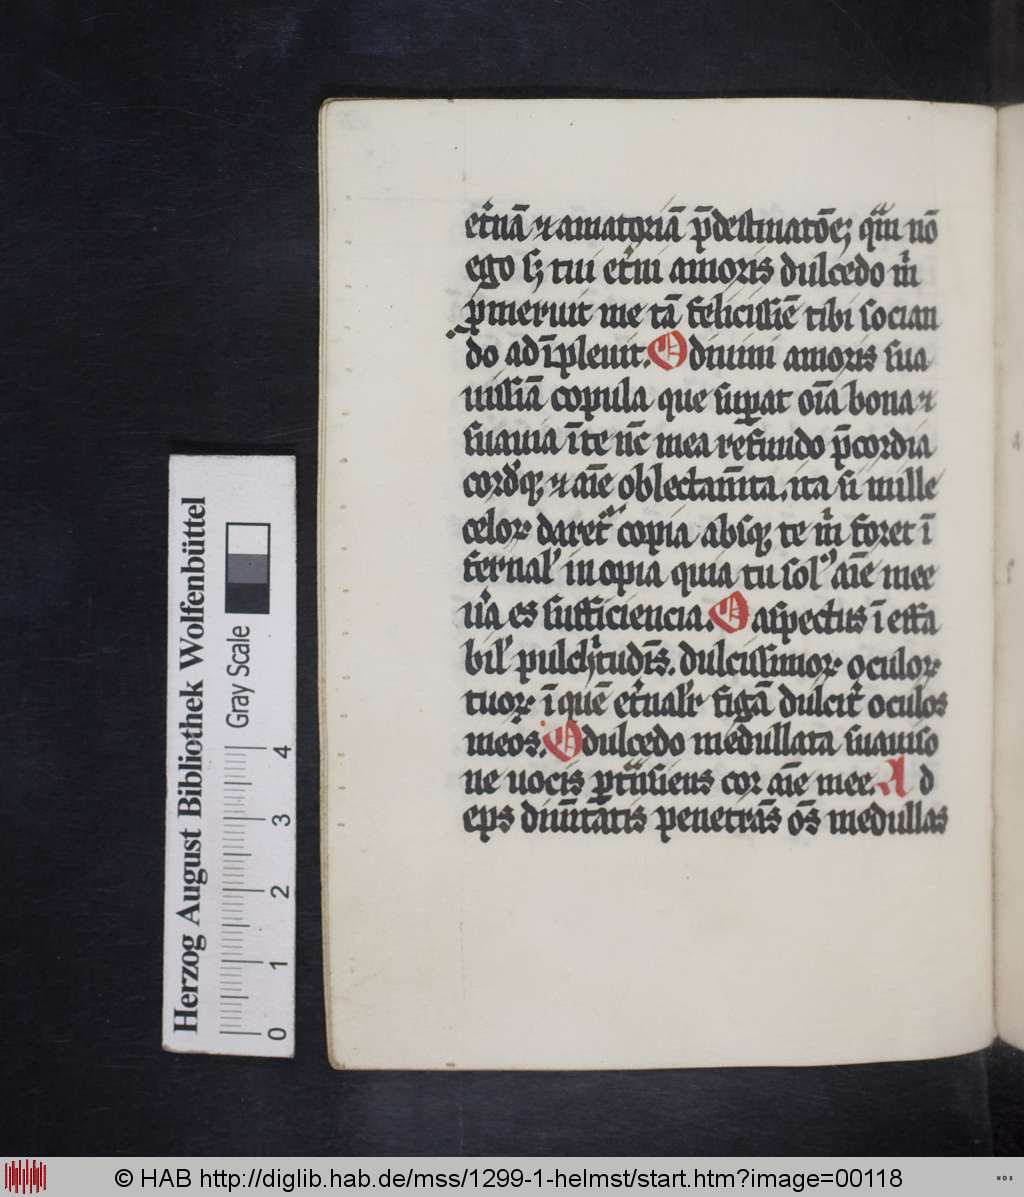 et᷑nā ⁊ amatoriā p̄destinatōeꝫ qm̄ nō
ego sꝫ tui et᷑ni amoris dulcedo m̄
ꝓmeruit me tā felicissīe tibi socian
do adīpleuit. O diuini amoris sua
uissīā copula que suꝑat oīa bona ⁊
suauia ī te nc̄ mea refundo p̄cordia
cordisqꝫ ⁊ aīe oblectam̄ta. ita si mille
celoꝝ daret᷑ copia absqꝫ te m̄ foret ī
fernal᷑ inopia quia tu sol᷒ aīe mee
u᷑a es sufficiencia. O aspectus ī effa
bil᷑ pulch᷑tudīs. dulcissimoꝝ oculoꝝ
tuoꝝ ī quē et᷑nal᷑r figā dulcit᷑ oculos
meos. O dulcedo medullata suauiso
ne uocis ꝑtransiens cor aīe mee. A d
eps diuīt̄atis penetrās oēs medullas
Herzog August Bibliothek Wolfenbüttel
Gray Scale
0 1 2 3 4
© HAB http://diglib.hab.de/mss/1299-1-helmst/start.htm?image=00118